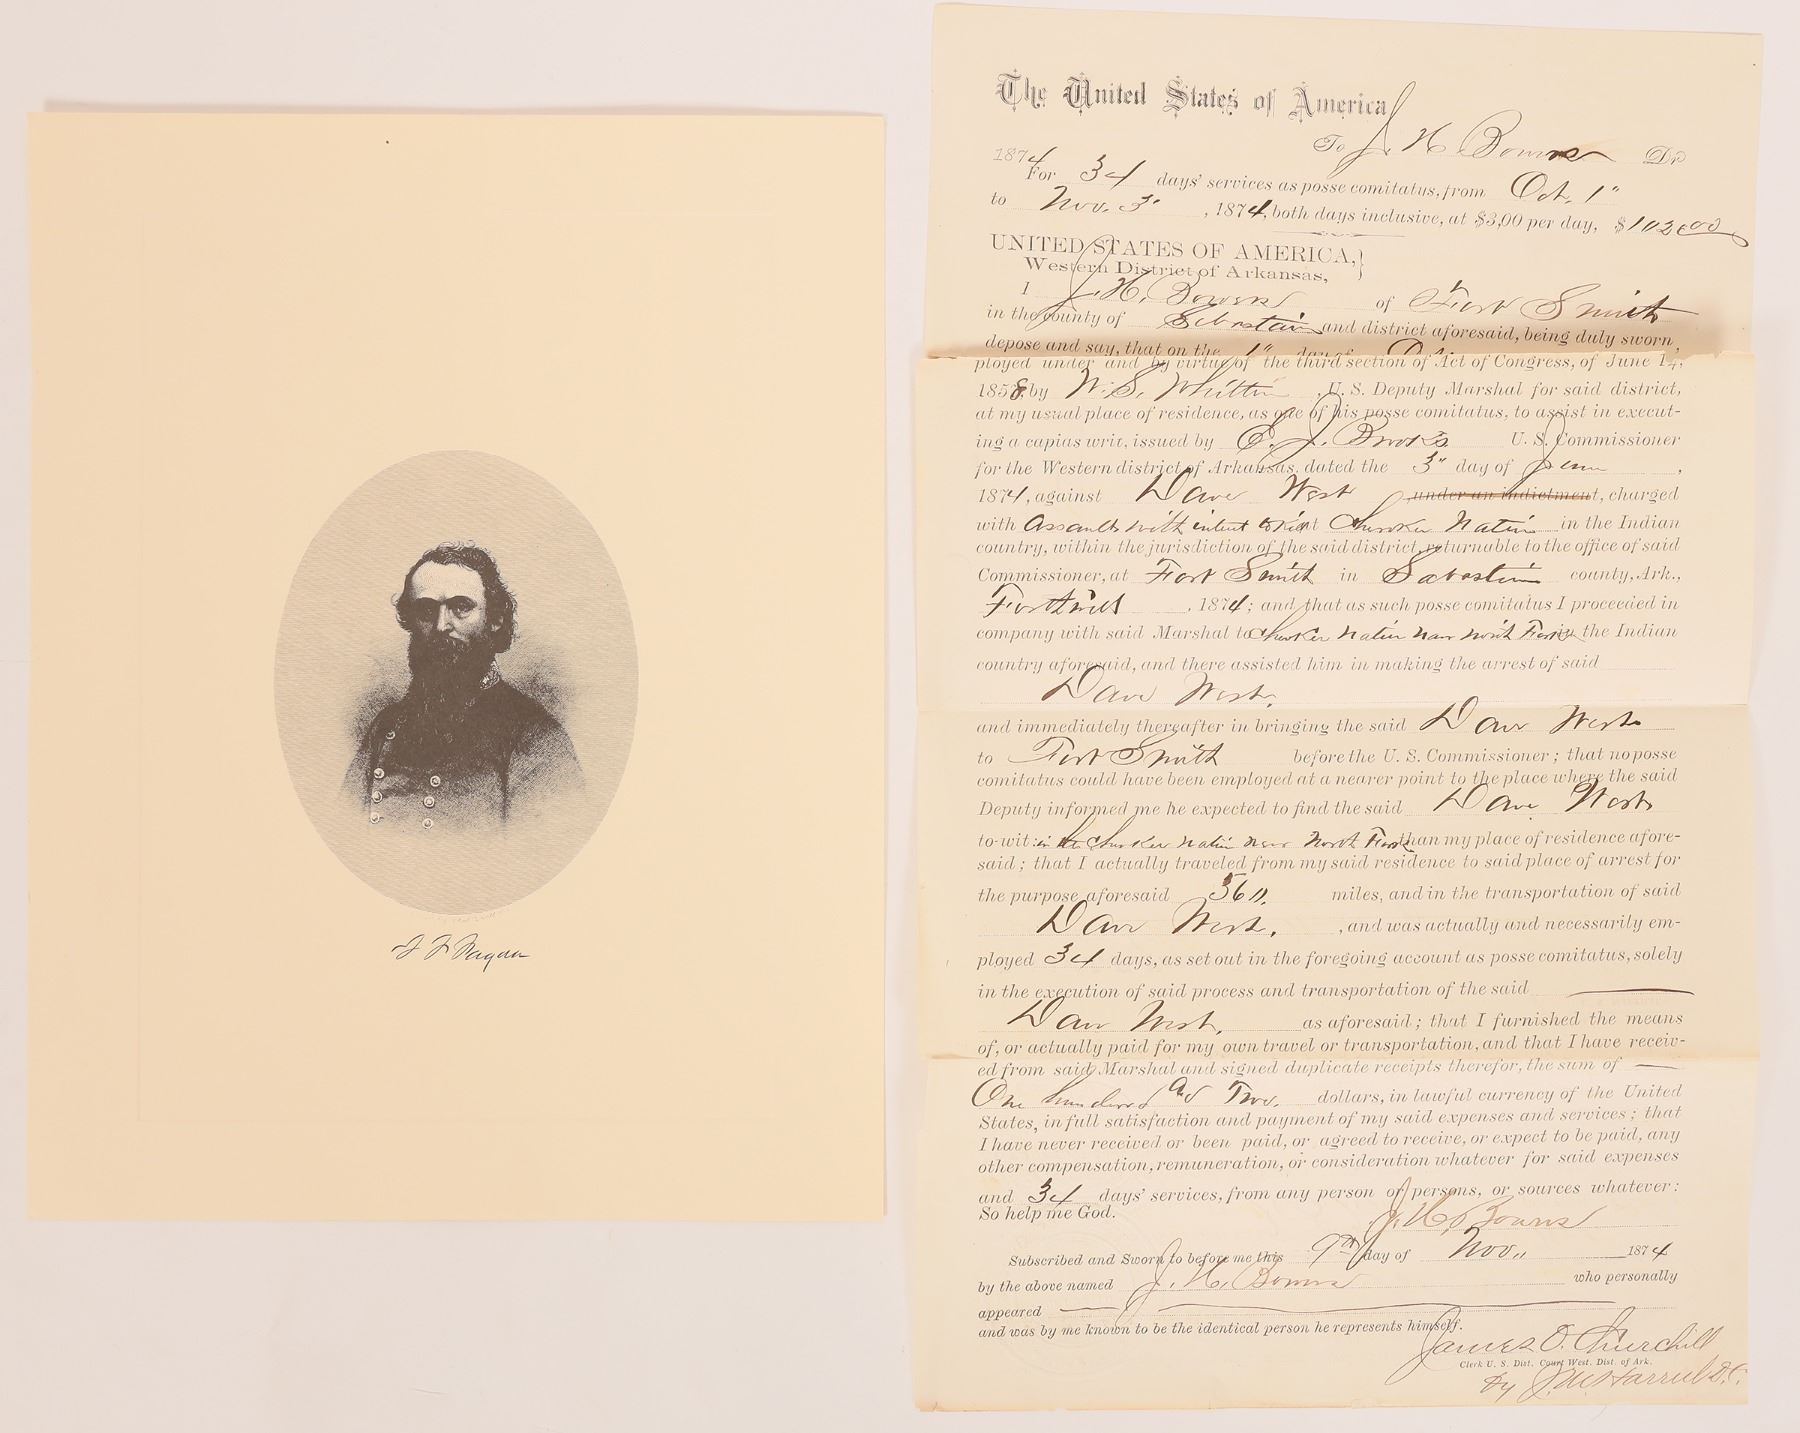 J F Fagan
The United States of America
To J. H. Bowers Dr
1874
For 34 days' services as posse comitatus, from Oct. 1"
to Nov. 3" , 1874, both days inclusive, at $3,00 per day, $102.00
UNITED STATES OF AMERICA,}
Western District of Arkansas,
I J. H. Bowers of Fort Smith
in the county of Sebastian and district aforesaid, being duly sworn,
depose and say, that on the 1" day of
ployed under and by virtue of the third section of Act of Congress, of June 14,
1858, by W. S. Whittin , U. S. Deputy Marshal for said district,
at my usual place of residence, as one of his posse comitatus, to assist in execut-
ing a capias writ, issued by E. J. Brooks U. S. Commissioner
for the Western district of Arkansas, dated the 3" day of ,
1874, against Dave West under an indictment, charged
with assault with intent to kill Cherokee Nation in the Indian
country, within the jurisdiction of the said district, returnable to the office of said
Commissioner, at Fort Smith in Sebastian county, Ark.,
Forthwith , 1874; and that as such posse comitatus I proceeded in
company with said Marshal to Cherokee Nation near North Fork in the Indian
country aforesaid, and there assisted him in making the arrest of said
Dave West,
and immediately thereafter in bringing the said Dave West
to Fort Smith before the U. S. Commissioner; that no posse
comitatus could have been employed at a nearer point to the place where the said
Deputy informed me he expected to find the said Dave West
to-wit: in the Cherokee Nation near North Fork than my place of residence afore-
said; that I actually traveled from my said residence to said place of arrest for
the purpose aforesaid 360. miles, and in the transportation of said
Dave West. , and was actually and necessarily em-
ployed 34 days, as set out in the foregoing account as posse comitatus, solely
in the execution of said process and transportation of the said
Dave West, as aforesaid; that I furnished the means
of, or actually paid for my own travel or transportation, and that I have receiv-
ed from said Marshal and signed duplicate receipts therefor, the sum of
One hundred and Two. dollars, in lawful currency of the United
States, in full satisfaction and payment of my said expenses and services; that
I have never received or been paid, or agreed to receive, or expect to be paid, any
other compensation, remuneration, or consideration whatever for said expenses
and 34 days' services, from any person or persons, or sources whatever:
So help me God.
J. H. Bowers
Subscribed and Sworn to before me this 9th day of Nov., 1874
by the above named J. H. Bowers who personally
appeared
and was by me known to be the identical person he represents himself.
James O. Churchill
Clerk U. S. Dist. Court West. Dist. of Ark.
by D.C.